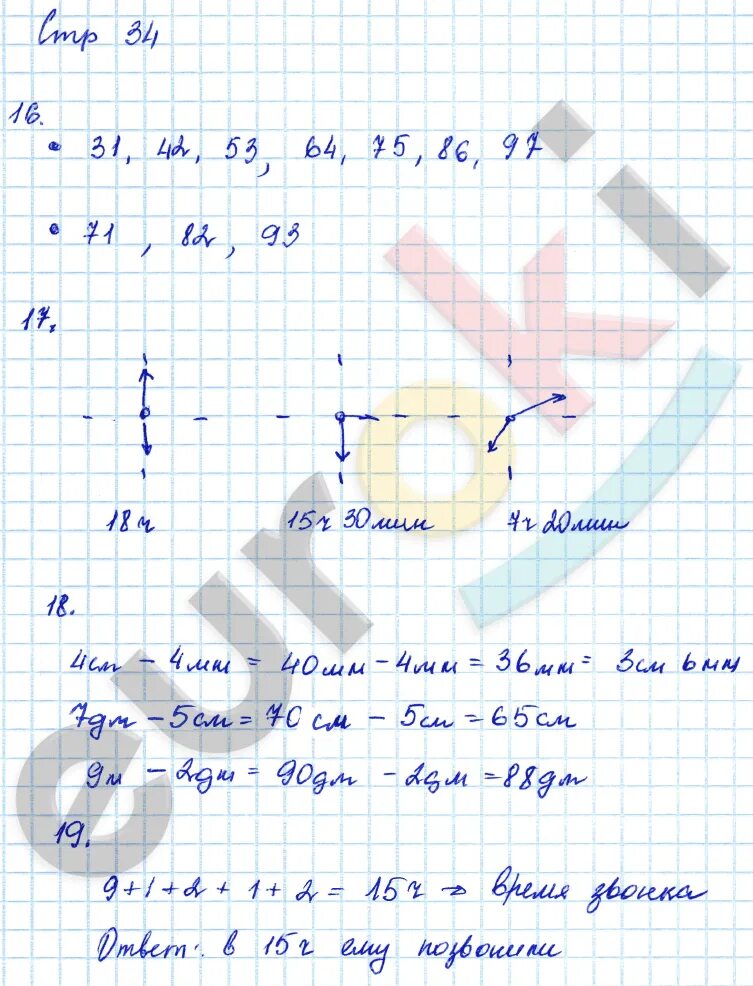 Стр 34
16.
• 31, 42, 53, 64, 75, 86, 97
• 71, 82, 93
17.
18ч 15ч 30мин 7ч 20мин
18.
4см - 4мм = 40мм - 4мм = 36мм = 3см 6мм
7дм - 5см = 70см - 5см = 65см
9м - 2дм = 90дм - 2дм = 88дм
19.
9+1+2+1+2 = 15ч → время звонка
Ответ: в 15ч ему позвонили
euroki